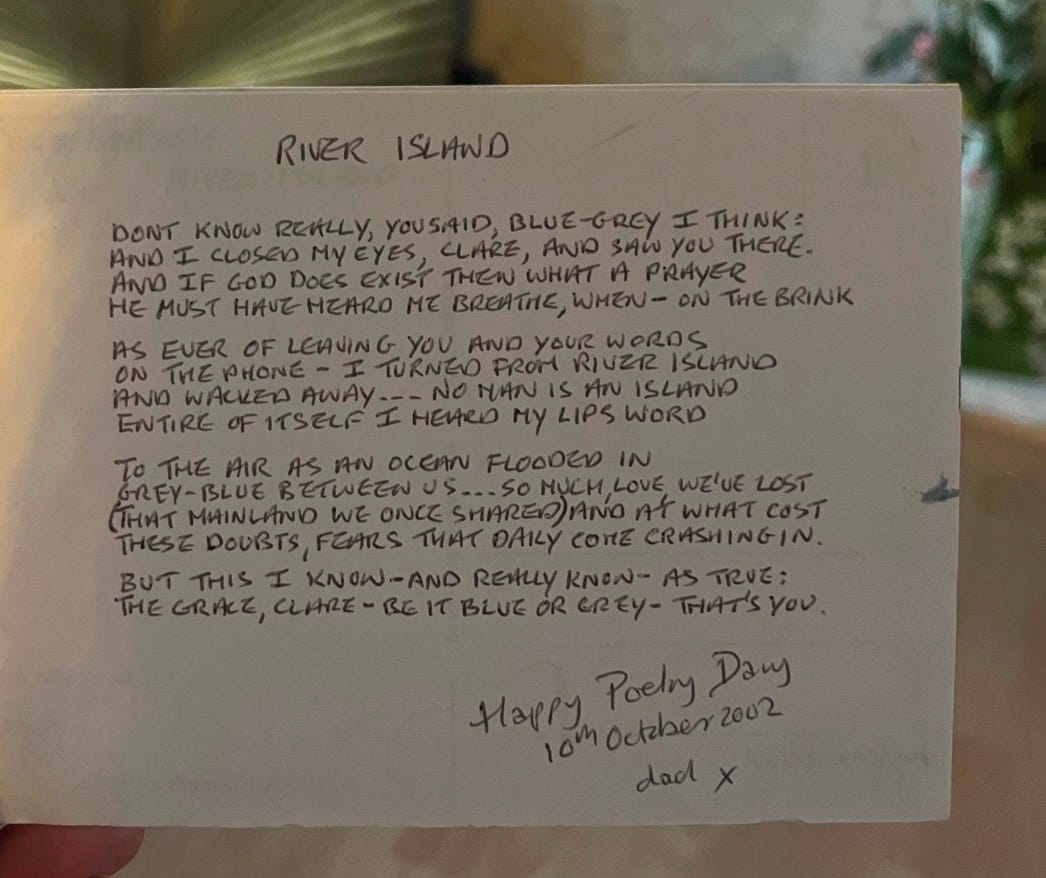 RIVER ISLAND
DONT KNOW REALLY, YOU SAID, BLUE-GREY I THINK:
AND I CLOSED MY EYES, CLARE, AND SAW YOU THERE.
AND IF GOD DOES EXIST THEN WHAT A PRAYER
HE MUST HAVE HEARD ME BREATHE, WHEN - ON THE BRINK
AS EVER OF LEAVING YOU AND YOUR WORDS
ON THE PHONE - I TURNED FROM RIVER ISLAND
AND WALKED AWAY... NO MAN IS AN ISLAND
ENTIRE OF ITSELF I HEARD MY LIPS WORD
TO THE AIR AS AN OCEAN FLOODED IN
GREY-BLUE BETWEEN US... SO MUCH, LOVE, WE'VE LOST
(THAT MAINLAND WE ONCE SHARED) AND AT WHAT COST
THESE DOUBTS, FEARS THAT DAILY COME CRASHING IN.
BUT THIS I KNOW - AND REALLY KNOW - AS TRUE:
THE GRACE, CLARE - BE IT BLUE OR GREY - THAT'S YOU.
Happy Poetry Day
10th October 2002
dad x